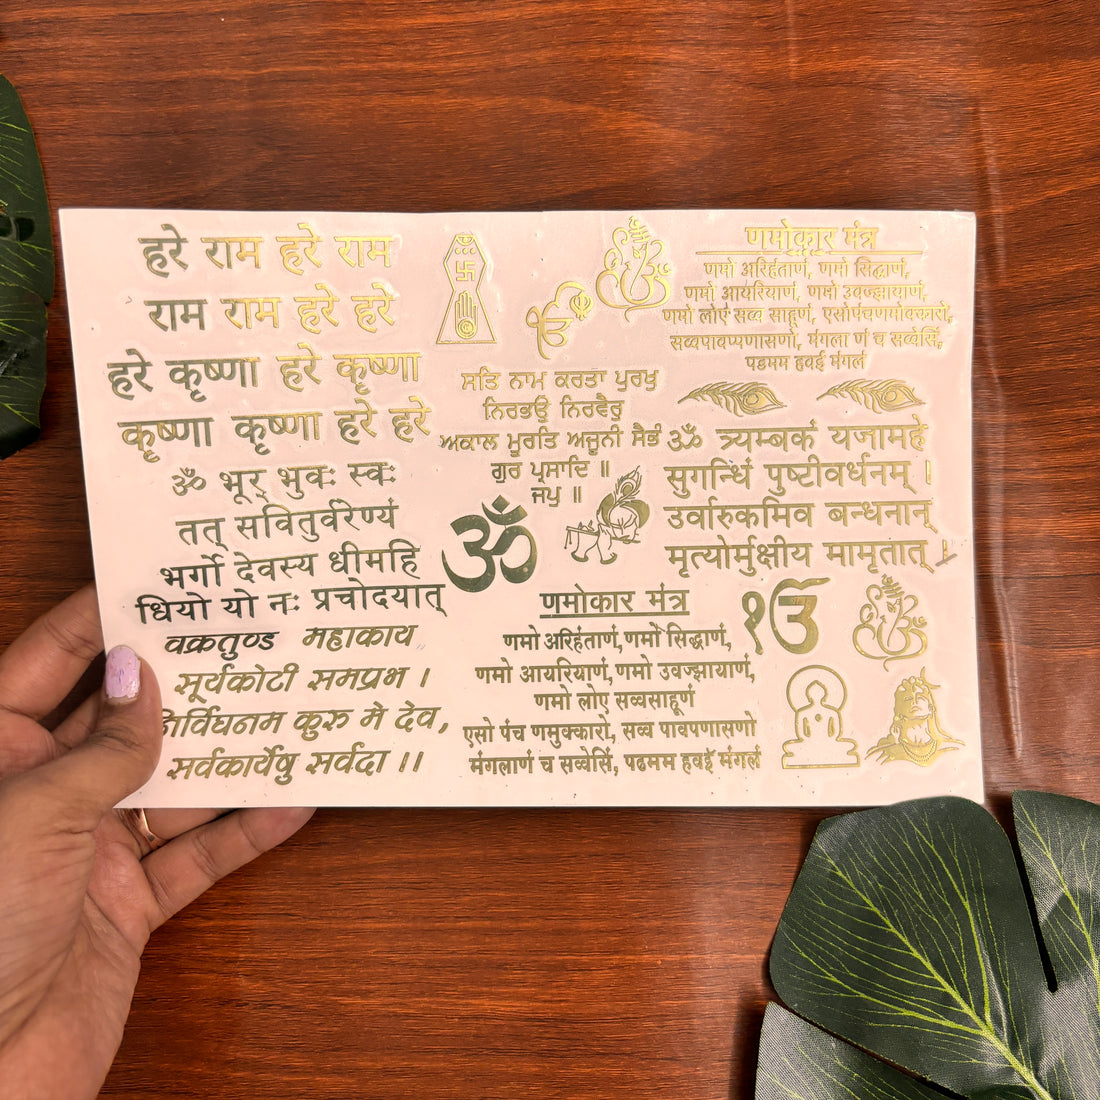 हरे राम हरे राम
राम राम हरे हरे
हरे कृष्णा हरे कृष्णा
कृष्णा कृष्णा हरे हरे
ॐ भूर् भुवः स्वः
तत् सवितुर्वरेण्यं
भर्गो देवस्य धीमहि
धियो यो नः प्रचोदयात्
वक्रतुण्ड महाकाय
सूर्यकोटी समप्रभ ।
निर्विघनम कुरु मे देव,
सर्वकार्येषु सर्वदा ।।
ੴ
ਸਤਿ ਨਾਮ ਕਰਤਾ ਪੁਰਖੁ
ਨਿਰਭਉ ਨਿਰਵੈਰੁ
ਅਕਾਲ ਮੂਰਤਿ ਅਜੂਨੀ ਸੈਭੰ
ਗੁਰ ਪ੍ਰਸਾਦਿ ॥
ਜਪੁ ॥
ॐ
णमोकार मंत्र
णमो अरिहंताणं, णमो सिद्धाणं,
णमो आयरियाणं, णमो उवज्झायाणं,
णमो लोए सव्वसाहूणं
एसो पंच णमुक्कारो, सव्व पावपणासणो
मंगलाणं च सव्वेसिं, पढमम हवई मंगलं
णमोक्कार मंत्र
णमो अरिहंताणं, णमो सिद्धाणं,
णमो आयरियाणं, णमो उवज्झायाणं,
णमो लोएं सव्व साहूणं, एसोपंचणमोक्कारो,
सव्वपावप्पणासणो, मंगला णं च सव्वेसिं,
पडमम हवई मंगलं
ॐ त्र्यम्बकं यजामहे
सुगन्धिं पुष्टीवर्धनम् ।
उर्वारुकमिव बन्धनान्
मृत्योर्मुक्षीय मामृतात् ।
ੴ